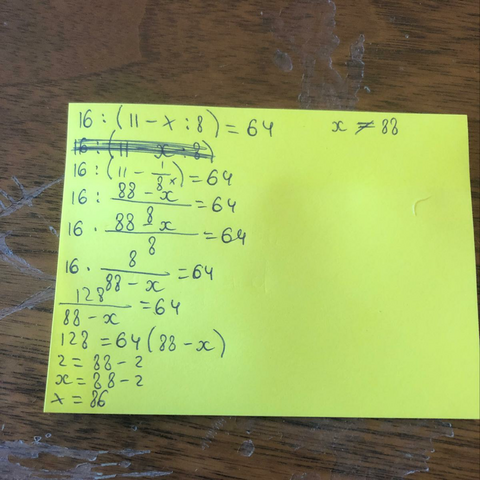 16 : (11 - x : 8) = 64 x ≠ 88
16 : (11 x : 8)
16 : (11 - 1/8 x) = 64
16 : (88 - x)/8 = 64
16 · (88 - x)/8 = 64
16 · 8/(88 - x) = 64
128/(88 - x) = 64
128 = 64 (88 - x)
2 = 88 - 2
x = 88 - 2
x = 86